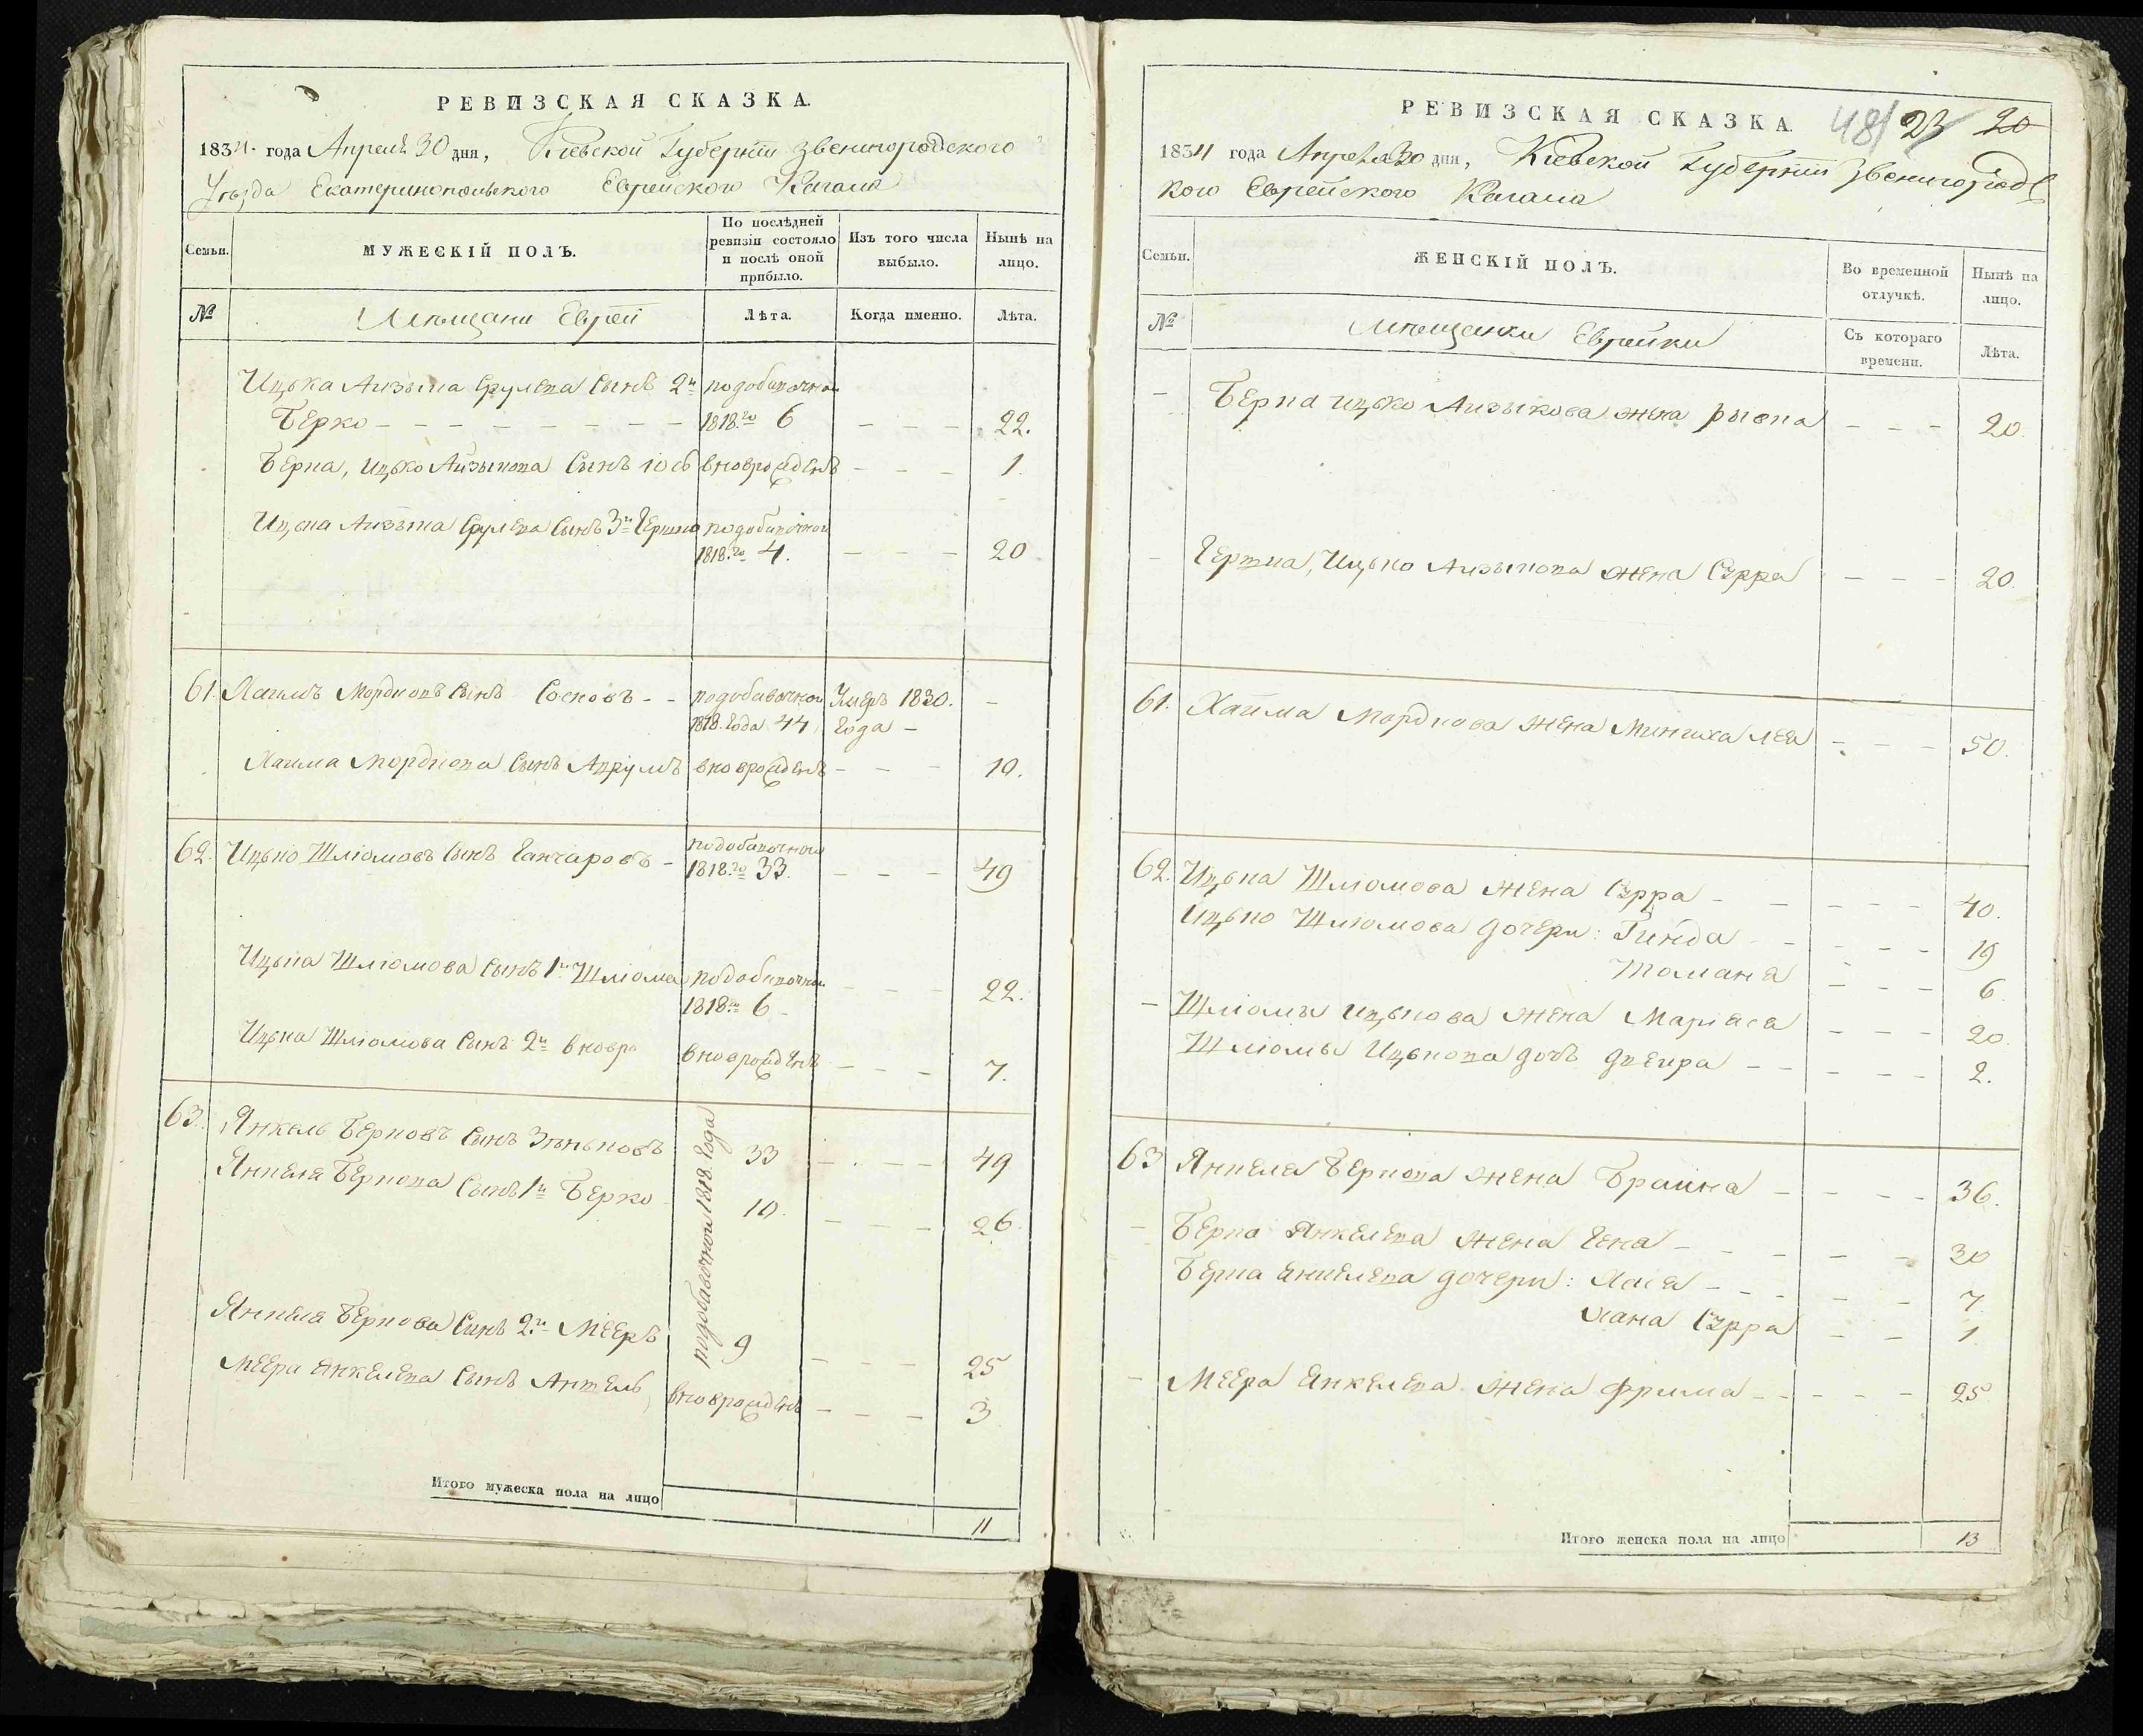 РЕВИЗСКАЯ СКАЗКА.
1834 года Апреля 30 дня, Кіевской Губерніи Звенигородского
Уезда Екатеринопольского Еврейского Кагала
Семьи.
МУЖЕСКІЙ ПОЛЪ.
По послѣдней ревизіи состояло и послѣ оной прибыло.
Изъ того числа выбыло.
Нынѣ на лицо.
№
Мѣщани Евреи
Лѣта.
Когда именно.
Лѣта.
Ицька Айзыка Сруле­ва Сынъ 2й подобавочной
Берко - - - - - - - - 1818го 6 - - - 22.
Берка, Ицько Айзыкова Сынъ Іосъ вноврожденъ - - - 1.
Ицька Айзыка Срулева Сынъ 3й Гершко подобавочной
1818го 4. - - - 20
61. Хаимъ Мордковъ Сынъ Сосновъ - - подобавочной Умеръ 1830. -
1818. Года 44 Года -
Хаима Мордкова Сынъ Аврумъ вноврожденъ - - - 10.
62. Ицько Шліомовъ Сынъ Ганчаровъ - подобавочной
1818го 33. - - - 49
Ицька Шліомова Сынъ 1й Шліома подобавочной
1818го 6 - - - - 22.
Ицька Шліомова Сынъ 2й вновро вноврожденъ - - - 7.
63. Янкель Берковъ Сынъ Зѣньковъ 33 - - - - 49
подобавочной 1818. Года
Янкеля Беркова Сынъ 1й Берко 10. - - - 26.
Янкеля Беркова Сынъ 2й Мееръ 9 - - - 25
Меера Янкелева Сынъ Аншель вноврожденъ - - - 3
Итого мужеска пола на лицо
11
РЕВИЗСКАЯ СКАЗКА.
48/ 23 20
1834 года Апреля 30 дня, Кіевской Губерніи Звенигородс
кого Еврейского Кагала
Семьи.
ЖЕНСКІЙ ПОЛЪ.
Во временной отлучкѣ.
Нынѣ на лицо.
№
Мѣщанки Еврейки
Съ котораго времени.
Лѣта.
- Берка Ицько Айзыкова жена Рысна - - - 20.
- Гершка, Ицько Айзыкова жена Сурра - - - 20.
61. Хаима Мордкова жена Минциха Лея - - - 50.
62. Ицька Шліомова жена Сурра - - - - - 40.
Ицько Шліомова дочери: Гинда - - - - - 19
- - - 6
- Шліомы Ицькова жена Маріася - - - 20.
Шліомы Ицькова дочь Двейра - - - - - 2.
63 Янкеля Беркова жена Браина - - - - 36.
- Берко Янкелева жена Гена - - - - - 30
Берка Янкелева дочери: Хася - - - - - 7.
Хана Сурра - - 1.
- Меера Янкелева жена Фрима - - - - - 25
Итого женска пола на лицо
13